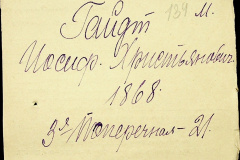 139 М.
Гайдт
Иосиф. Христьянович
1868.
3я Поперечная - 21.